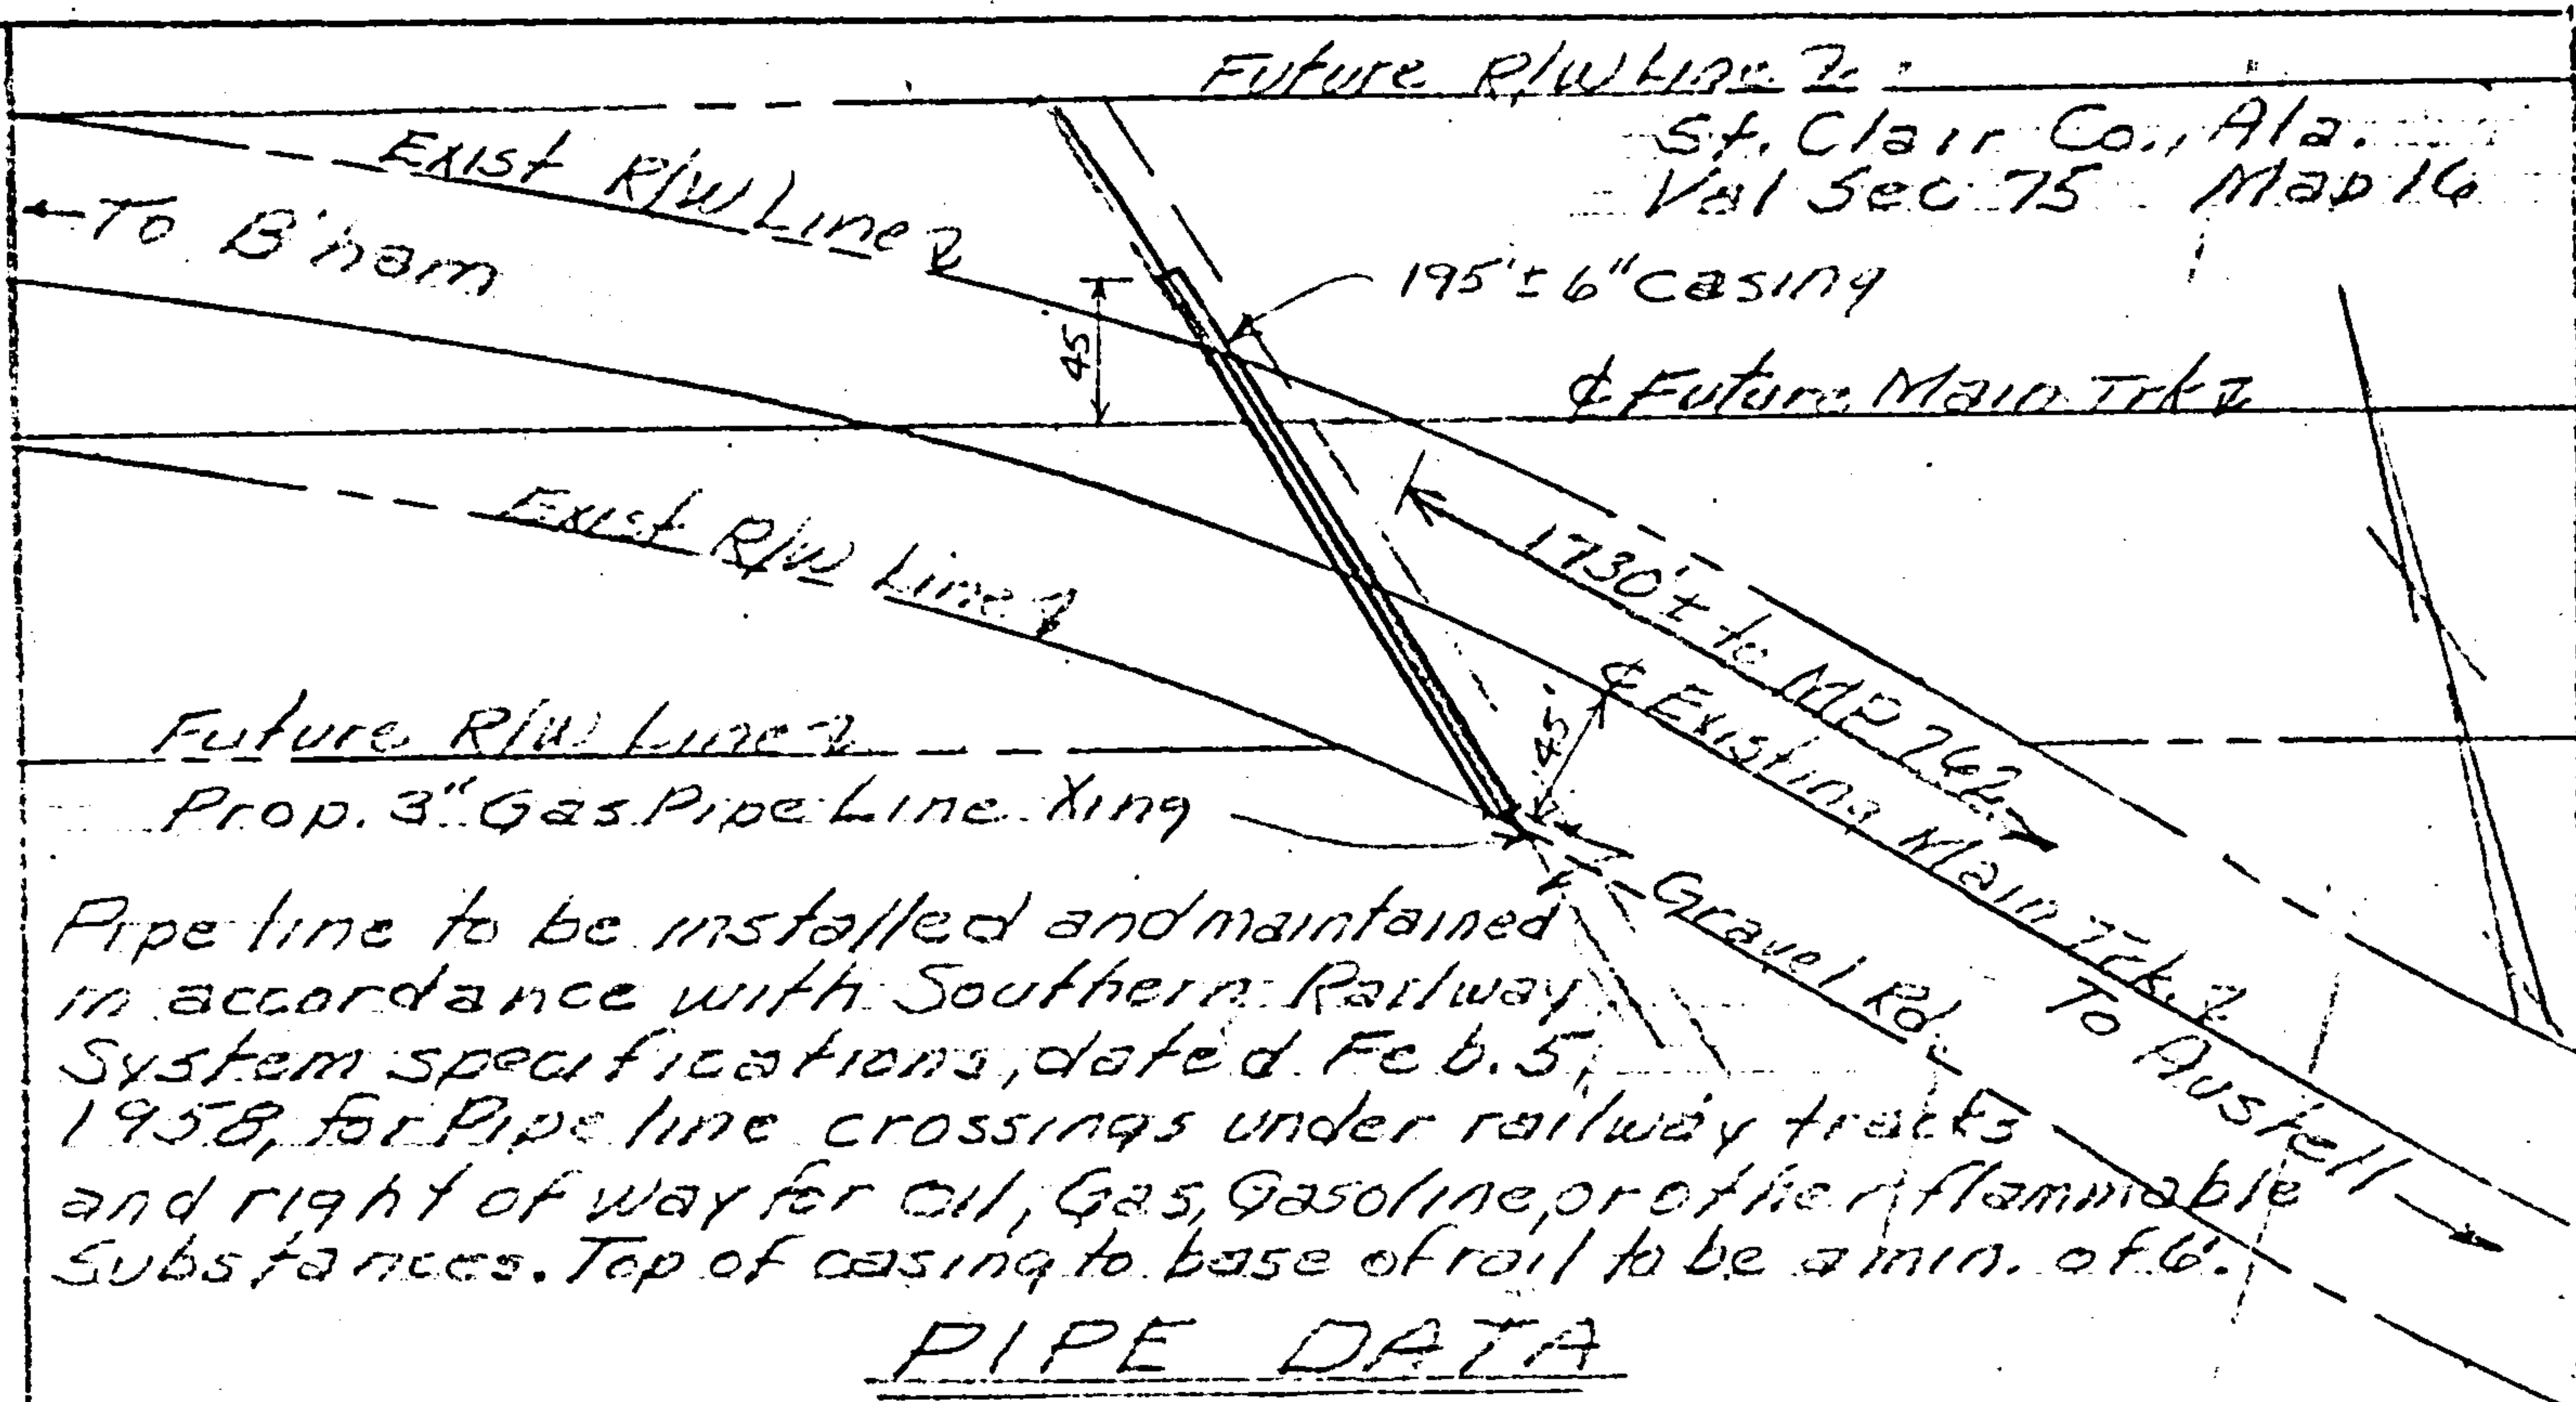 Future R/W Line
St. Clair Co., Ala.
Val Sec 75 Map 16
Exist R/W Line
←To B'ham
195'± 6" casing
45'
℄ Future Main Trk
Exist R/W Line
1730'± to MP 762
℄ Existing Main Trk.
45'
Future R/W Line
Prop. 3" Gas Pipe Line Xing
Gravel Rd.
To Austell
Pipe line to be installed and maintained
in accordance with Southern Railway
System specifications, dated Feb. 5,
1958, for Pipe line crossings under railway tracks
and right of way for Oil, Gas, Gasoline, or other flammable
Substances. Top of casing to base of rail to be a min. of 6'.
PIPE DATA